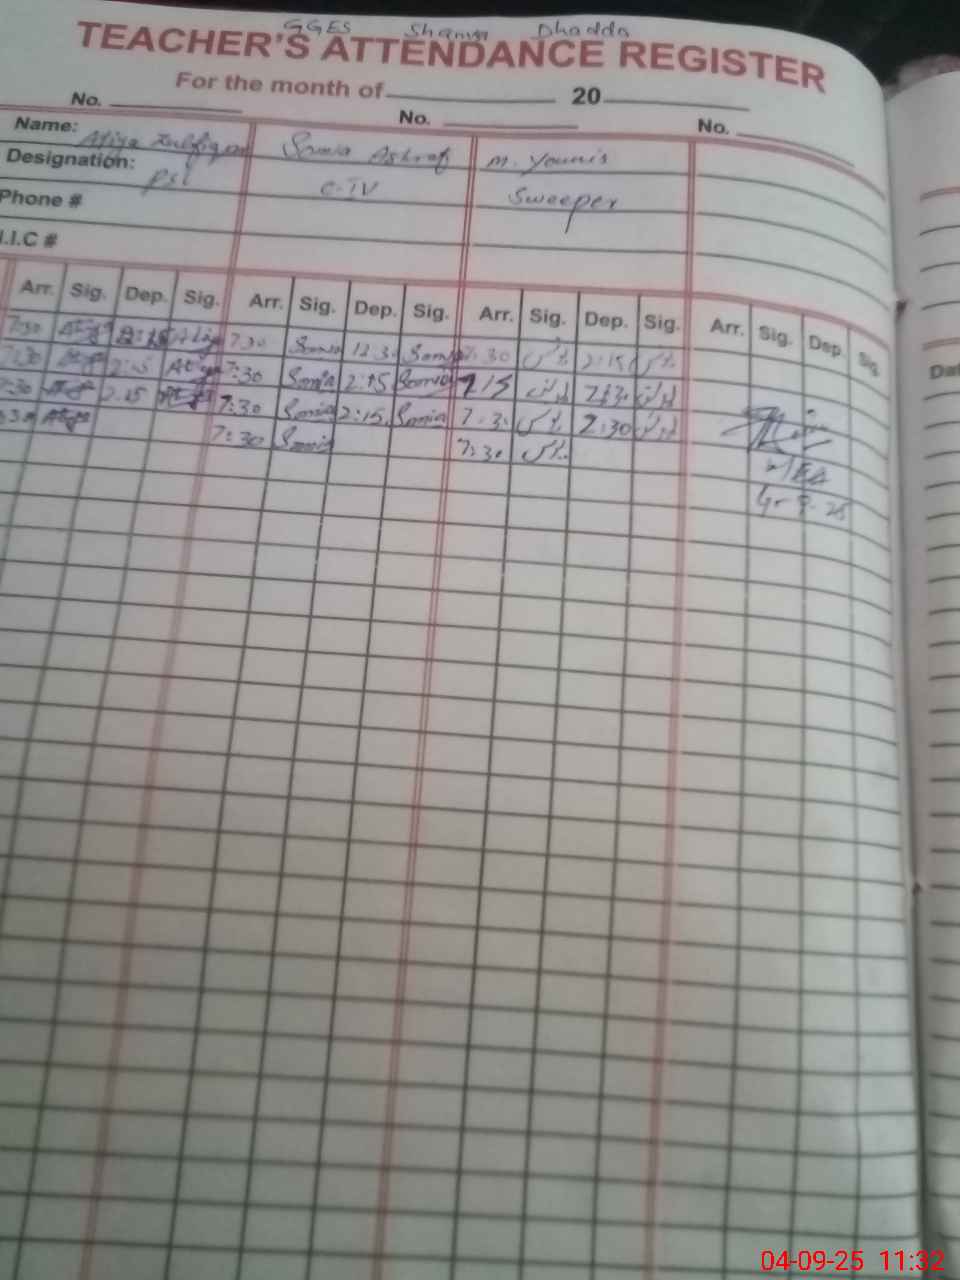 GGES Shamsa Dhadda
TEACHER'S ATTENDANCE REGISTER
For the month of 20
No. No. No.
Name: Atiya Zulfiqar Somia Ashraf M. Younis
Designation: PST C-IV Sweeper
Phone #
I.I.C #
Arr. Sig. Dep. Sig. Arr. Sig. Dep. Sig. Arr. Sig. Dep. Sig. Arr. Sig. Dep. Sig.
7:30 Atiya 2:15 Atiya 7:30 Somia 12:30 Somia 7:30 2:15
7:30 Atiya 2:15 Atiya 7:30 Somia 2:15 Somia 7:15 2:30
7:30 Atiya 2:15 Atiya 7:30 Somia 2:15 Somia 7:30 2:30
7:30 Atiya 7:30 Somia 7:30
MEA
4-9-25
Dat
04-09-25 11:32